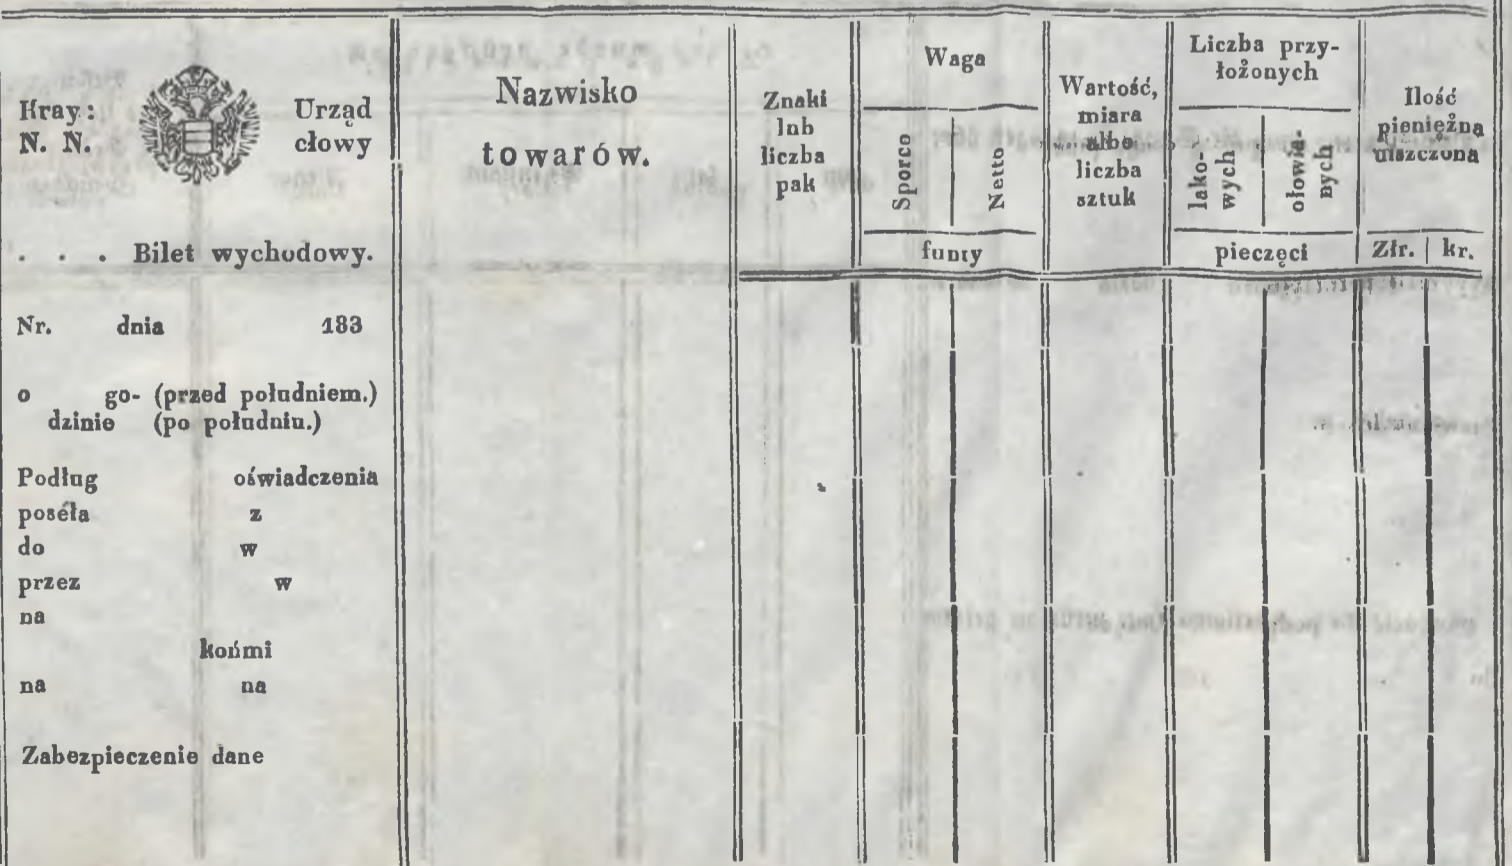 Kray:
N. N.
Urząd
cłowy
. . . Bilet wychodowy.
Nr. dnia 183
o go- (przed południem.)
dzinie (po południu.)
Podług oświadczenia
poséła z
do w
przez w
na
końmi
na na
Zabezpieczenie dane
Nazwisko
towarów.
Znaki
lub
liczba
pak
Waga
Sporco
Netto
funty
Wartość,
miara
albo
liczba
sztuk
Liczba przy-
łożonych
lako-
wych
ołowia-
nych
pieczęci
Ilość
pieniężna
uiszczona
Złr. kr.